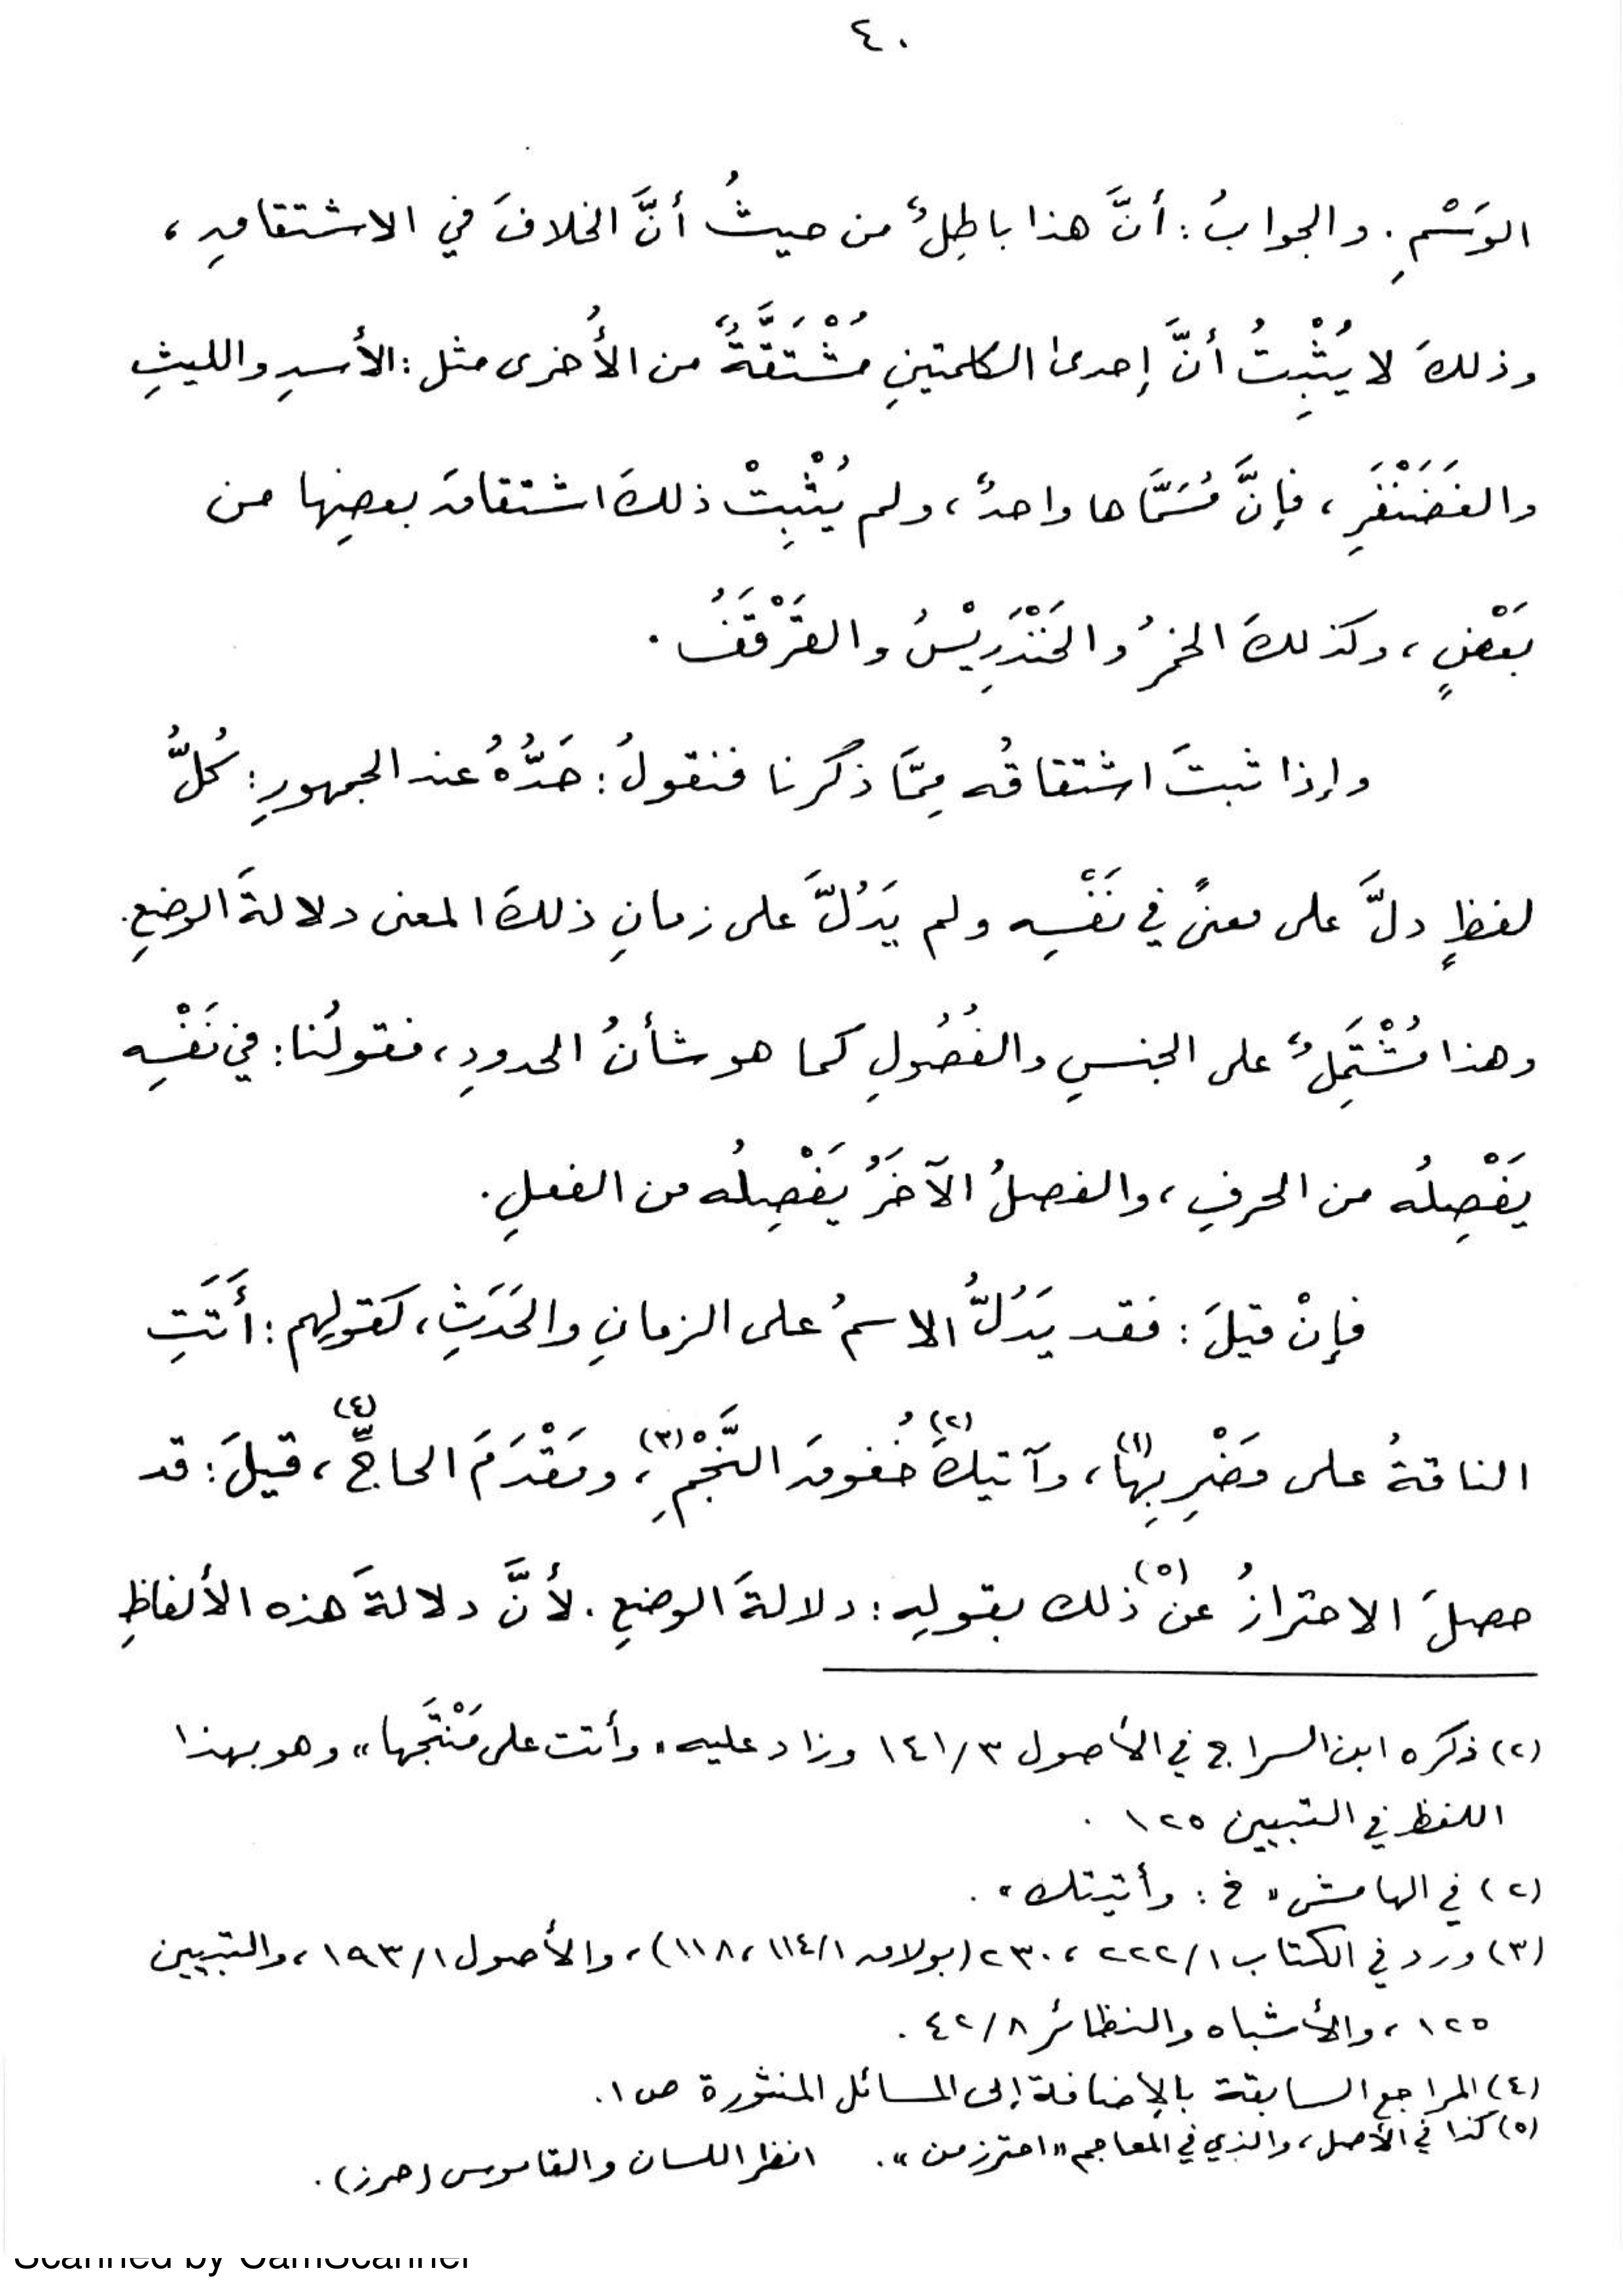 ٤٠
الوَسْمِ. والجوابُ: أنَّ هذا باطِلٌ من حيثُ أنَّ الخلافَ في الاشتقاقِ،
وذلكَ لا يُثْبِتُ أنَّ إحدى الكلمتينِ مُشْتَقَّةٌ من الأُخرى مثل: الأسدِ والليثِ
والغَضَنْفَرِ، فإنَّ مُسَمَّاها واحدٌ، ولم يُثْبِتْ ذلكَ اشتقاقَ بعضِها من
بَعْضٍ، وكذلكَ الخمرُ والخَنْدَرِيْسُ والقَرْقَفُ.
وإذا ثبتَ اشتقاقُه مِمَّا ذكرنا فنقولُ: حَدُّهُ عند الجمهورِ: كُلُّ
لفظٍ دلَّ على معنىً في نَفْسِه ولم يَدُلَّ على زمانِ ذلكَ المعنى دلالةَ الوضعِ.
وهذا مُشْتَمِلٌ على الجنسِ والفُصُولِ كما هو شأنُ الحدودِ، فقولُنا: في نَفْسِه
يَفْصِلُه من الحرفِ، والفصلُ الآخَرُ يَفْصِلُه من الفعلِ.
فإنْ قيلَ: فقد يَدُلُّ الاسمُ على الزمانِ والحَدَثِ، كقولِهم: أَتَتِ
الناقةُ على مَضْرِبِها(١)، وآتيكَ(٢) خُفوقَ النَّجْمِ(٣)، ومَقْدَمَ الحاجِّ(٤)، قيلَ: قد
حصلَ الاحترازُ عنْ(٥) ذلك بقولِه: دلالةَ الوضعِ. لأنَّ دلالةَ هذه الألفاظِ
(٢) ذكره ابن السراج في الأصول ١٤١/٣ وزاد عليه «وأتت على مَنْتَجِها» وهو بهذا
اللفظ في التبيين ١٢٥ .
(٢) في الهامش « خ : وأتيتك » .
(٣) ورد في الكتاب ٢٢٢/١ ، ٢٣٠ (بولاق ١١٤/١ ، ١١٨) ، والأصول ١٩٣/١ ، والتبيين
١٢٥ ، والأشباه والنظائر ٤٢/٨ .
(٤) المراجع السابقة بالإضافة إلى المسائل المنثورة ص ١.
(٥) كذا في الأصل، والذي في المعاجم «احترز من ». انظر اللسان والقاموس (حرز) .
Scanned by CamScanner